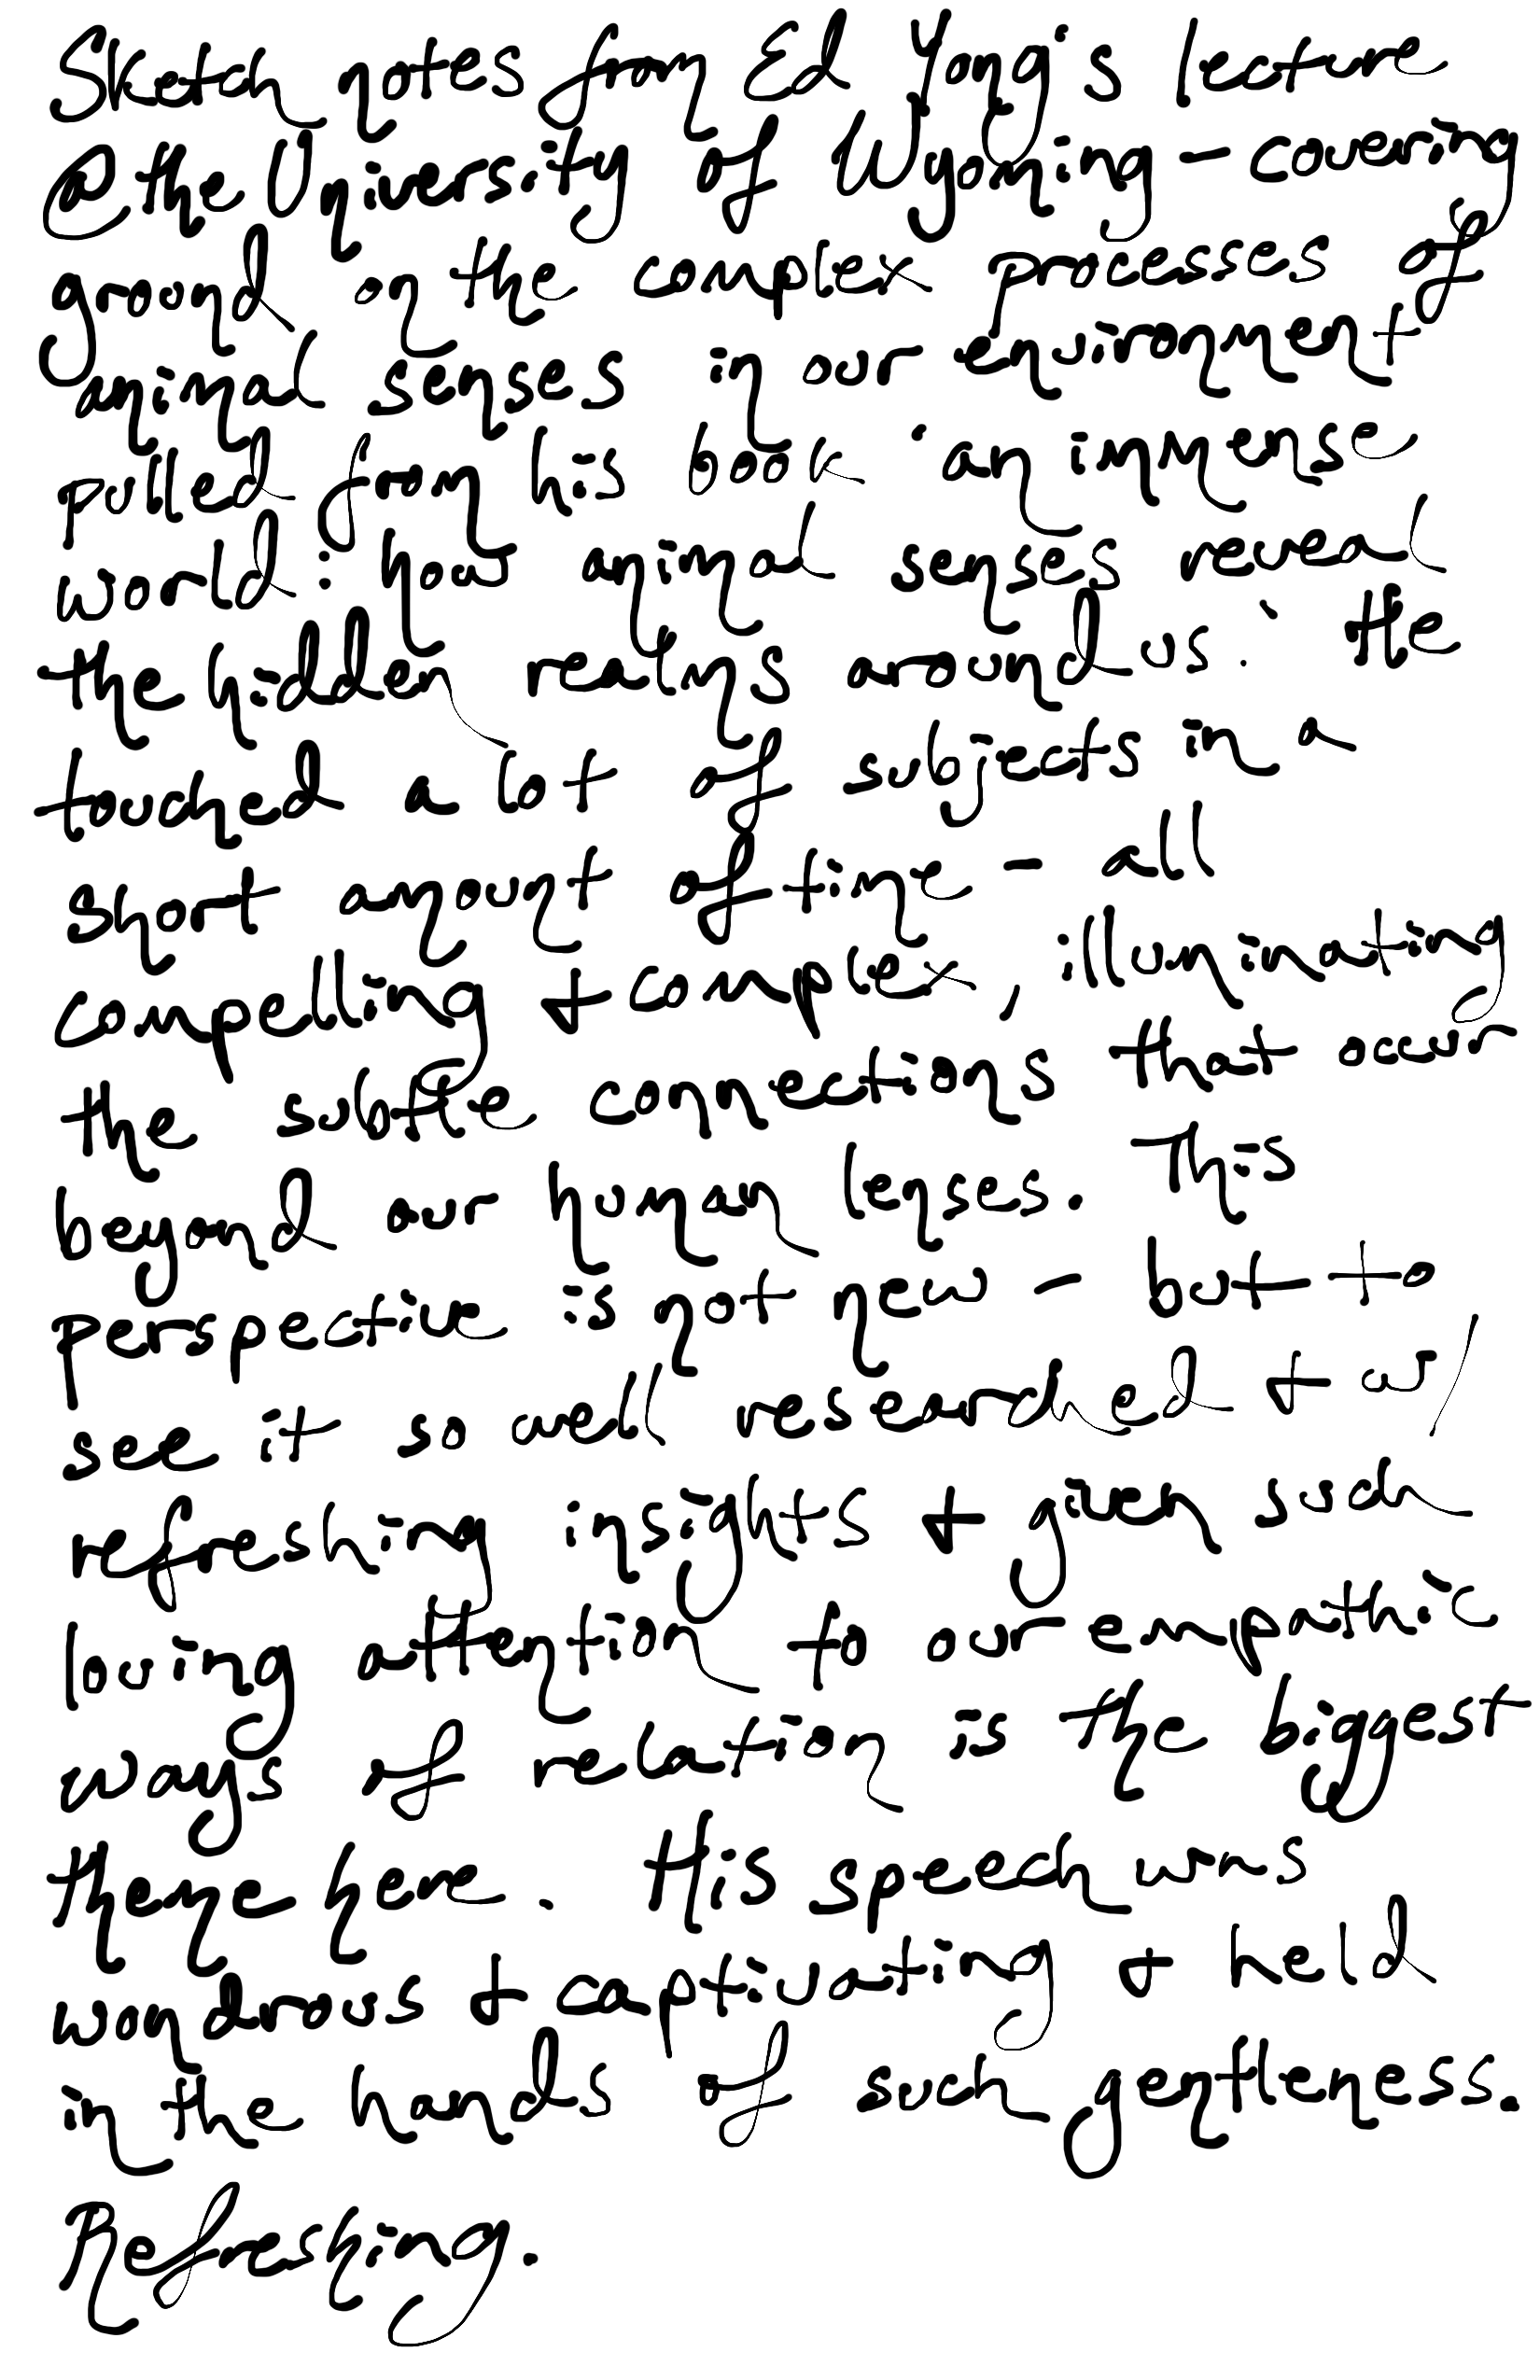 Sketch notes from Ed Yong's lecture
@ the University of Wyoming - covering
ground on the complex processes of
animal senses in our environment
pulled from his book 'an immense
world: how animal senses reveal
the hidden realms around us.' He
touched a lot of subjects in a
short amount of time - all
compelling + complex, illuminating
the subtle connections that occur
beyond our human lenses. This
perspective is not new - but to
see it so well researched + w/
refreshing insights + given such
loving attention to our empathic
ways of relation is the biggest
theme here. His speech was
wondrous + captivating + held
in the hands of such gentleness.
Refreshing.